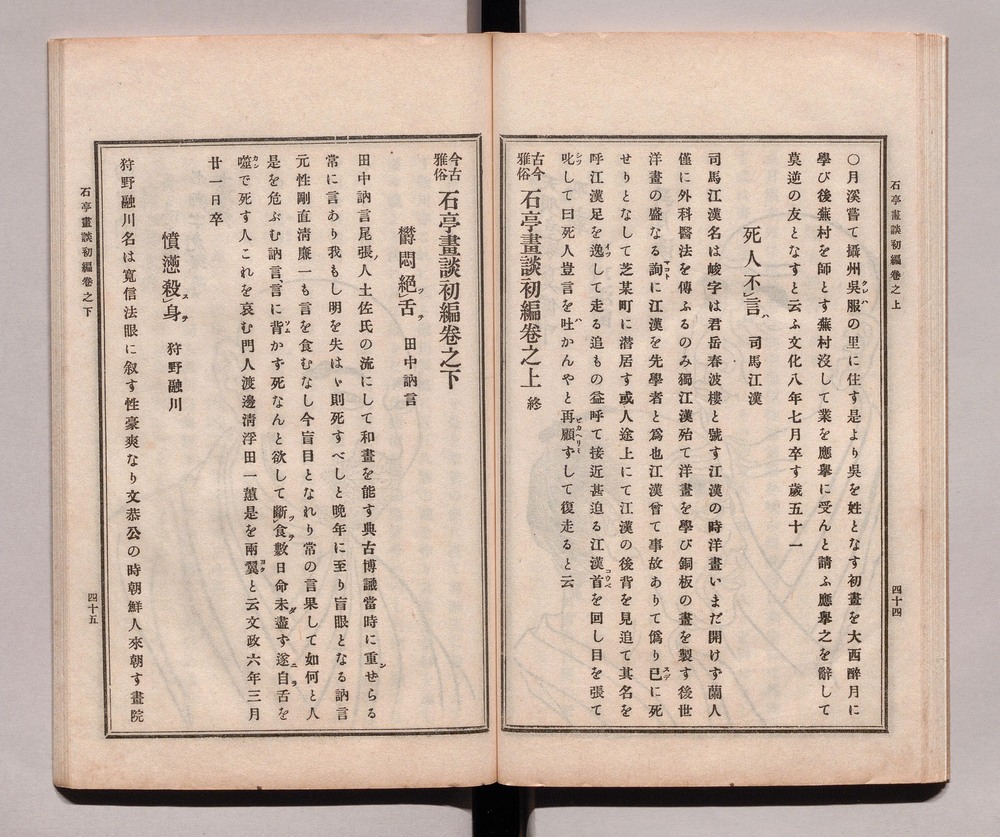 石亭畫談初編卷之上
四十四
〇月溪嘗て攝州吳服の里に住す是より吳を姓となす初畫を大西醉月に
學び後蕪村を師とす蕪村沒して業を應擧に受んと請ふ應擧之を辭して
莫逆の友となすと云ふ文化八年七月卒す歲五十一
死人不言 司馬江漢
司馬江漢名は峻字は君岳春波樓と號す江漢の時洋畫いまだ開けず蘭人
僅に外科醫法を傳ふるのみ獨江漢殆て洋畫を學び銅板の畫を製す後世
洋畫の盛なる詢に江漢を先學者と爲也江漢曾て事故ありて僞り已に死
せりとなして芝某町に潜居す或人途上にて江漢の後背を見追て其名を
呼江漢足を逸して走る追もの益呼て接近甚迫る江漢首を回し目を張て
叱して曰死人豈言を吐かんやと再顧ずして復走ると云
古今雅俗 石亭畫談初編卷之上 終
今古雅俗 石亭畫談初編卷之下
欝悶絕舌 田中訥言
田中訥言尾張ノ人土佐氏の流にして和畫を能す典古博識當時に重せらる
常に言あり我もし明を失はゝ則死すべしと晩年に至り盲眼となる訥言
元性剛直淸廉一も言を食むなし今盲目となれり常の言果して如何と人
是を危ぶむ訥言言に背かず死なんと欲して斷食數日命未盡ず遂自舌を
噬で死す人これを哀む門人渡邊淸浮田一蕙是を兩翼と云文政六年三月
廿一日卒
憤懣殺身 狩野融川
狩野融川名は寬信法眼に叙す性豪爽なり文恭公の時朝鮮人來朝す畫院
石亭畫談初編卷之下
四十五